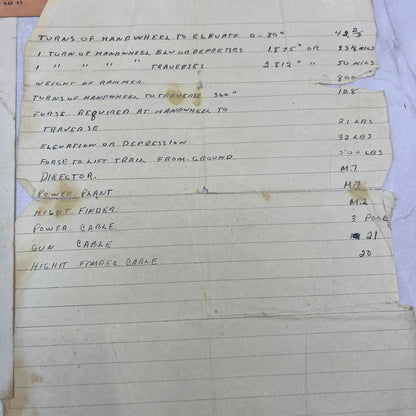 MAR 43.
TURNS OF HANDWHEEL TO ELEVATE 0-80° 42 2/3
1 TURN OF HANDWHEEL ELV OR DEPRESSES 1.875° OR 33 1/3 MILS
1 " " " " TRAVERSES 2.812° " 50 MILS
WEIGHT OF RAMMER. 800
TURNS OF HANDWHEEL TO TRAVERSE 360° 128
FORSE REQUIRED AT HANDWHEEL TO
TRAVERSE 21 LBS
ELEVATION OR DEPRESSION 32 LBS
FORSE TO LIFT TRAIL FROM GROUND. 500 LBS
DIRECTOR. M.7
POWER PLANT M.7
HIGHT FINDER. M.2
POWER CABLE 3 POLE
GUN CABLE 21
HIGHT FINDER CABLE 20